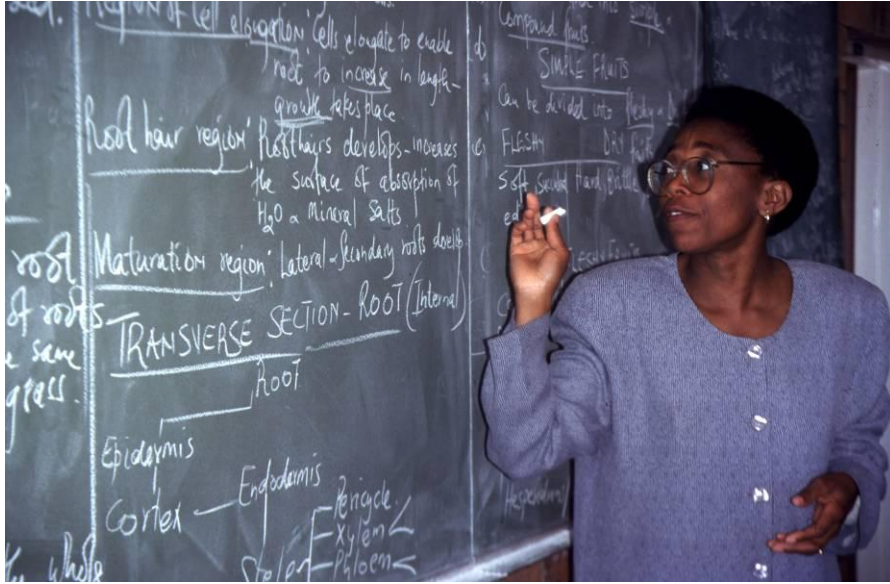 REGION OF Cell elongation: Cells elongate to enable
root to increase in length-
growth takes place
Root hair region: Root hairs develops - increases
the surface of absorption of
H₂O & Mineral Salts
Maturation region: Lateral & Secondary roots develop
TRANSVERSE SECTION - ROOT (Internal)
ROOT
Epidermis
Cortex
Endodermis
Stele
Pericycle
Xylem
Phloem
root
of roots
same
grass.
whole
Compound fruits
Simple
SIMPLE FRUITS
Can be divided into fleshy
FLESHY DRY
Soft, Hard, Brittle
FLESHY FRUITS